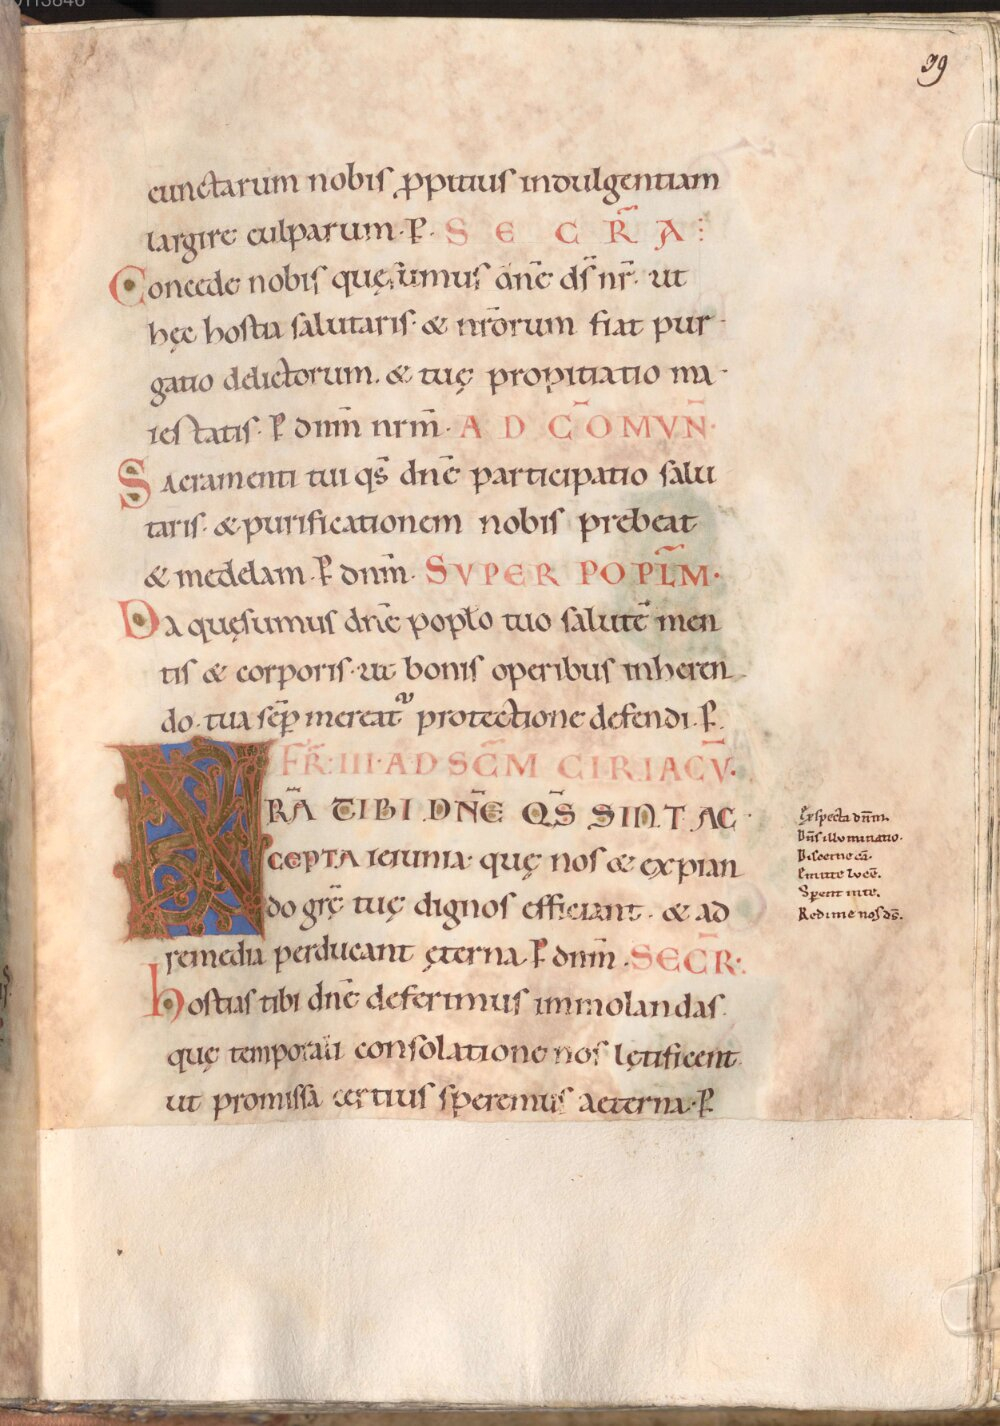 39
cunctarum nobis ꝓpitius indulgentiam
largire culparum. P̄. SECR̄A:
Concede nobis quęsumus dn̄e ds̄ nr̄. ut
hęc hostia salutaris. & nr̄orum fiat pur-
gatio delictorum. & tuę propitiatio ma-
iestatis. P̄ dnm̄ nrm̄. AD C̄OMVN̄.
Sacramenti tui qs̄ dn̄e participatio salu
taris. & purificationem nobis prebeat
& medelam. P̄ dnm̄. SVPER POPL̄M.
Da quęsumus dn̄e popło tuo salutē men
tis & corporis. ut bonis operibus inheren
do. tua sēp mereat᷑ protectione defendi. P̄.
FR̄. III. AD SC̄M CIRIACV̄.
NR̄A TIBI DN̄E QS̄ SINT AC
CEPTA ieiunia. quę nos & expian
do grē tuę dignos efficiant. & ad
remedia perducant ęterna. P̄ dnm̄. SECR̄:
hostias tibi dn̄e deferimus immolandas.
quę temporali consolatione nos lętificent.
ut promissa certius speremus aeterna. P̄
Exspecta dn̄m.
Dn̄s illuminatio.
Discerne cā.
Emitte lucē.
Sꝑent inte.
Redime nos ds̄.